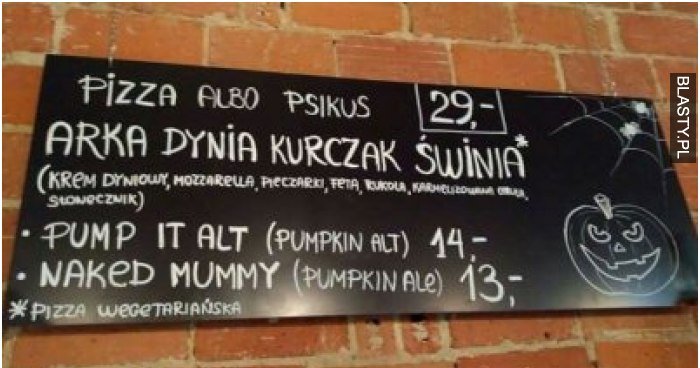 PIZZA ALBO PSIKUS 29,-
ARKA DYNIA KURCZAK ŚWINIA*
(KREM DYNIOWY, MOZZARELLA, PIECZARKI, FETA, RUKOLA, KARMELIZOWANA CEBULA,
SŁONECZNIK)
• PUMP IT ALT (PUMPKIN ALT) 14,-
• NAKED MUMMY (PUMPKIN ALE) 13,-
*PIZZA WEGETARIAŃSKA
BLASTY.PL